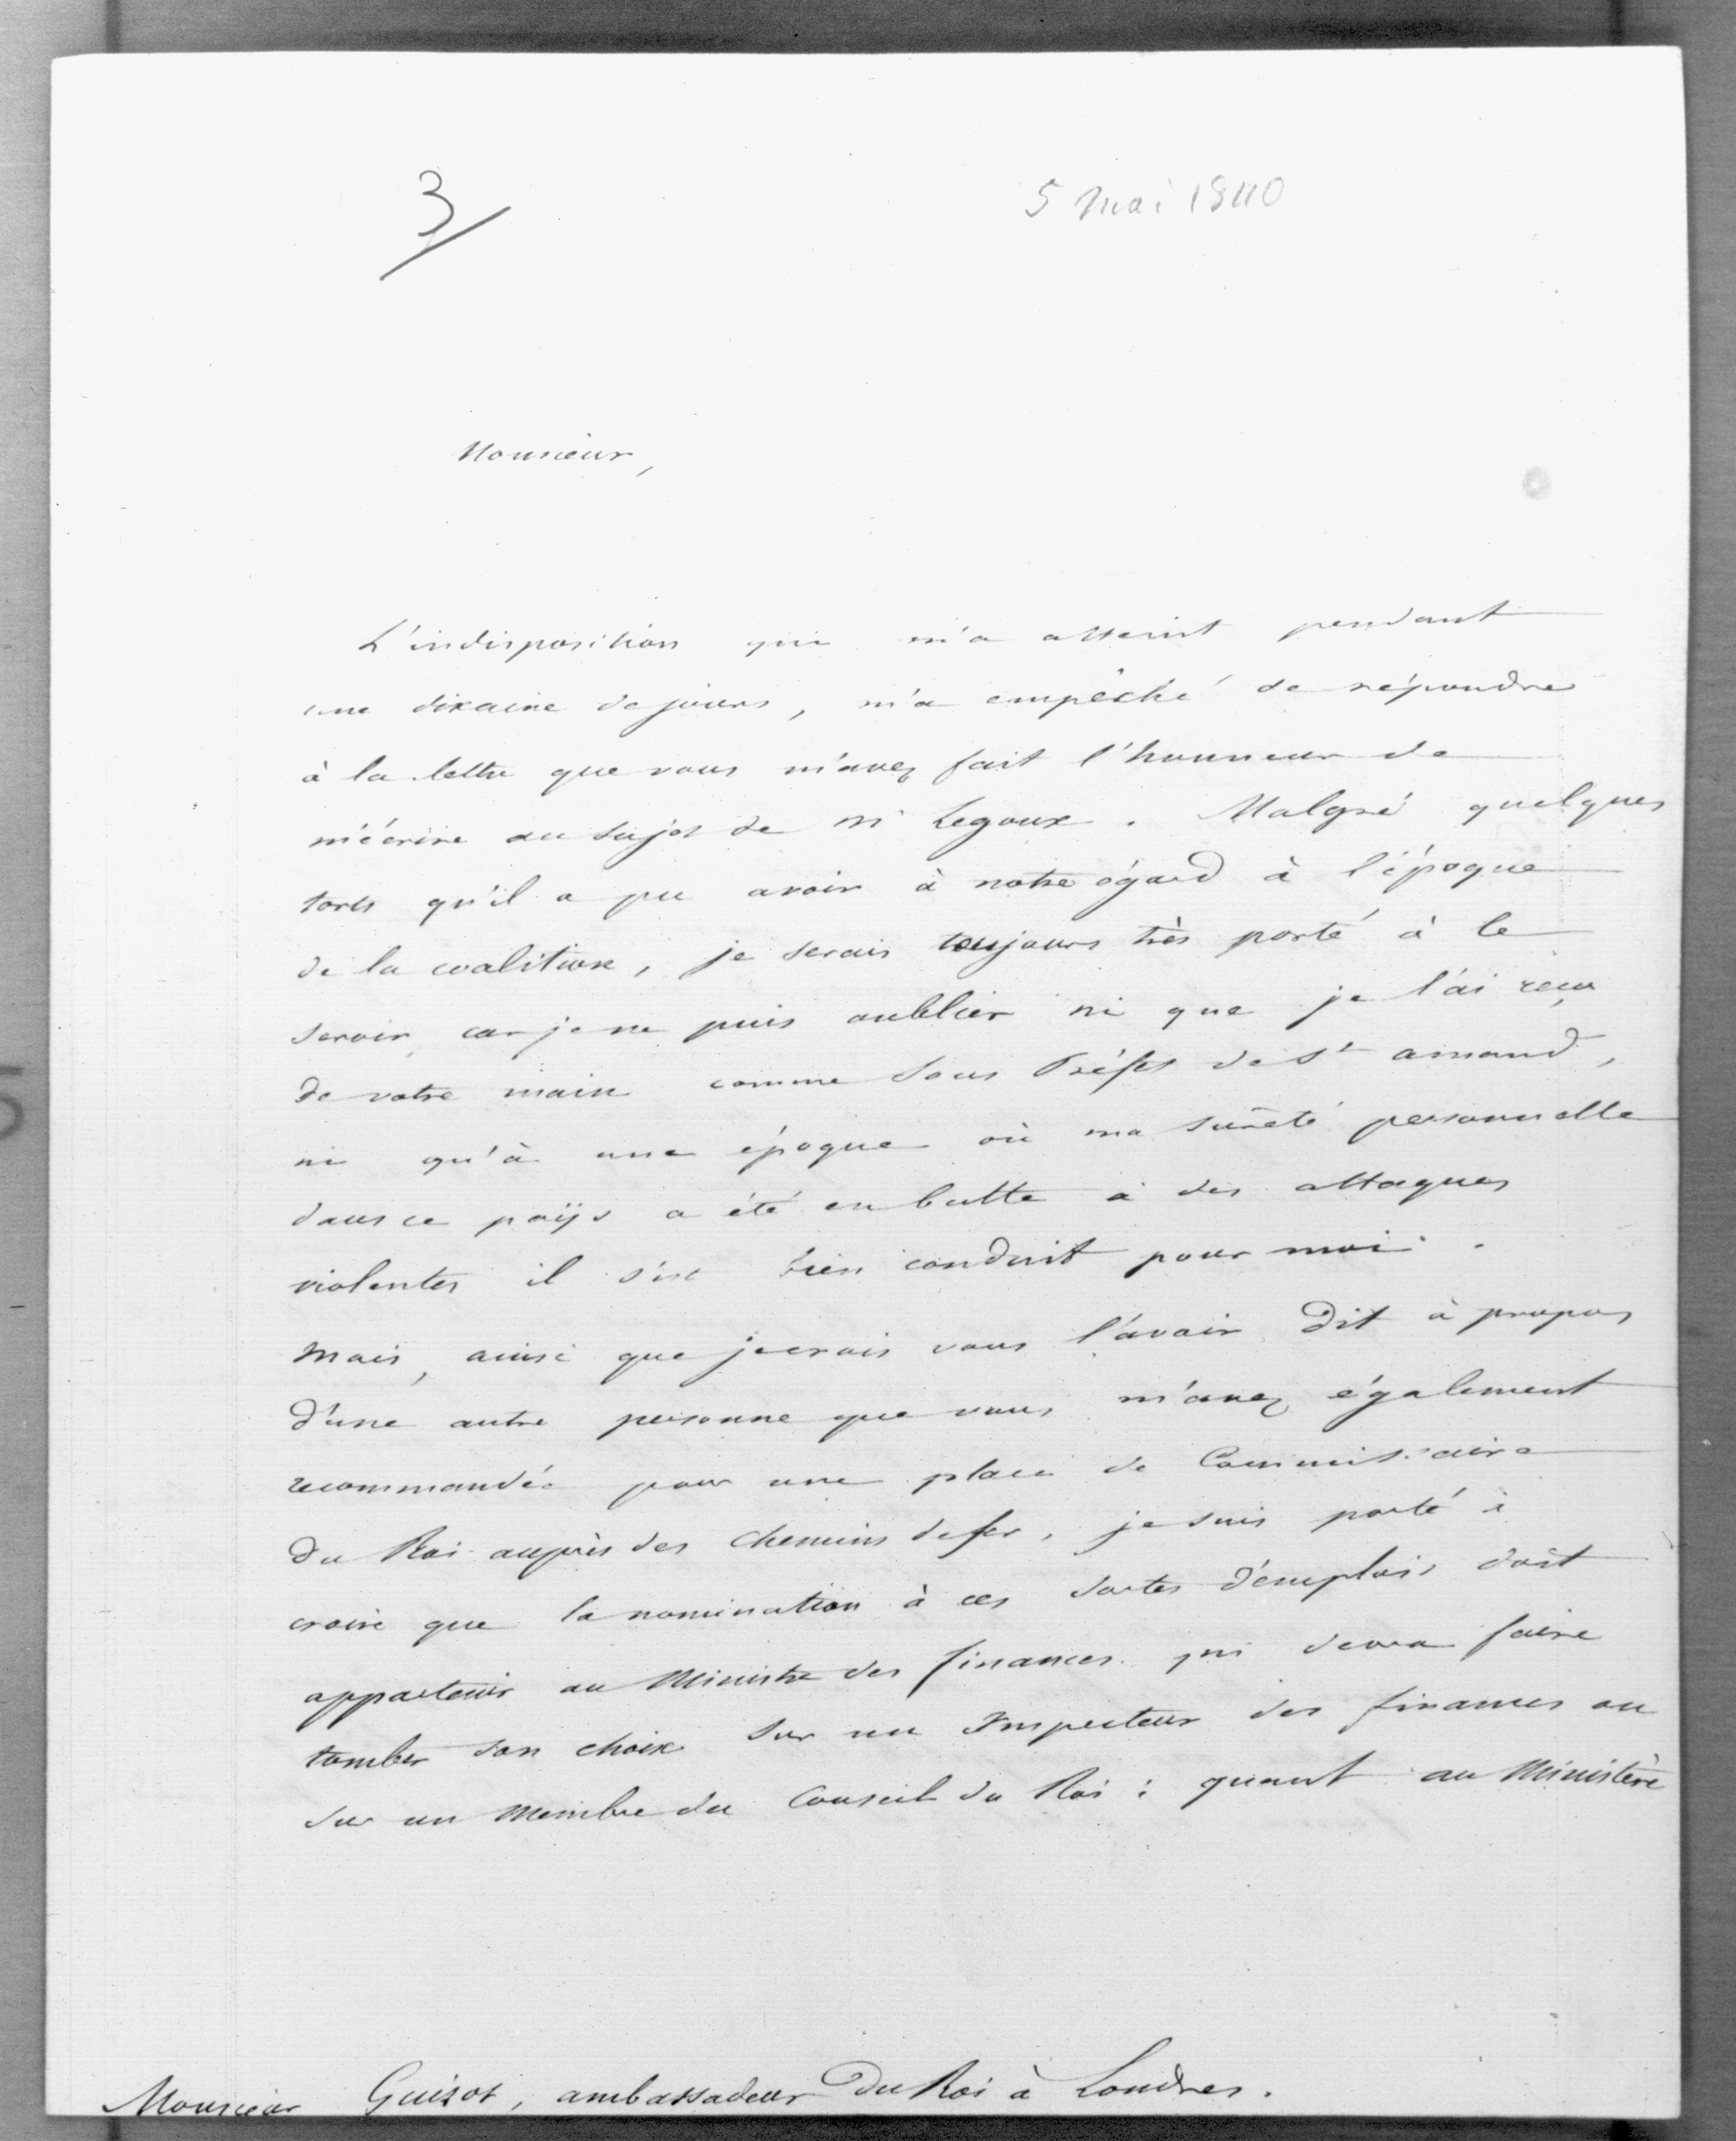 3
5 Mai 1840
Monsieur,
L'indisposition qui m'a atteint pendant
une dixaine de jours, m'a empêché de répondre
à la lettre que vous m'avez fait l'honneur de
m'écrire au sujet de Mr Legoux. Malgré quelques
torts qu'il a pu avoir à notre égard à l'époque
de la coalition, je serais toujours très porté à le
servir, car je ne puis oublier ni que je l'ai reçu
de votre main comme Sous Préfet de St amand,
ni qu'à une époque où ma sûreté personnelle
dans ce païs a été en butte à des attaques
violentes il s'est bien conduit pour moi.
Mais, ainsi que je crois vous l'avoir dit à propos
d'une autre personne que vous m'avez également
recommandée pour une place de Commissaire
du Roi auprès des chemins de fer, je suis porté à
croire que la nomination à ces sortes d'emplois doit
appartenir au Ministre des finances qui devra faire
tomber son choix sur un Inspecteur des finances ou
sur un membre du Conseil du Roi : quant au Ministère
Monsieur Guizot, ambassadeur du Roi à Londres.